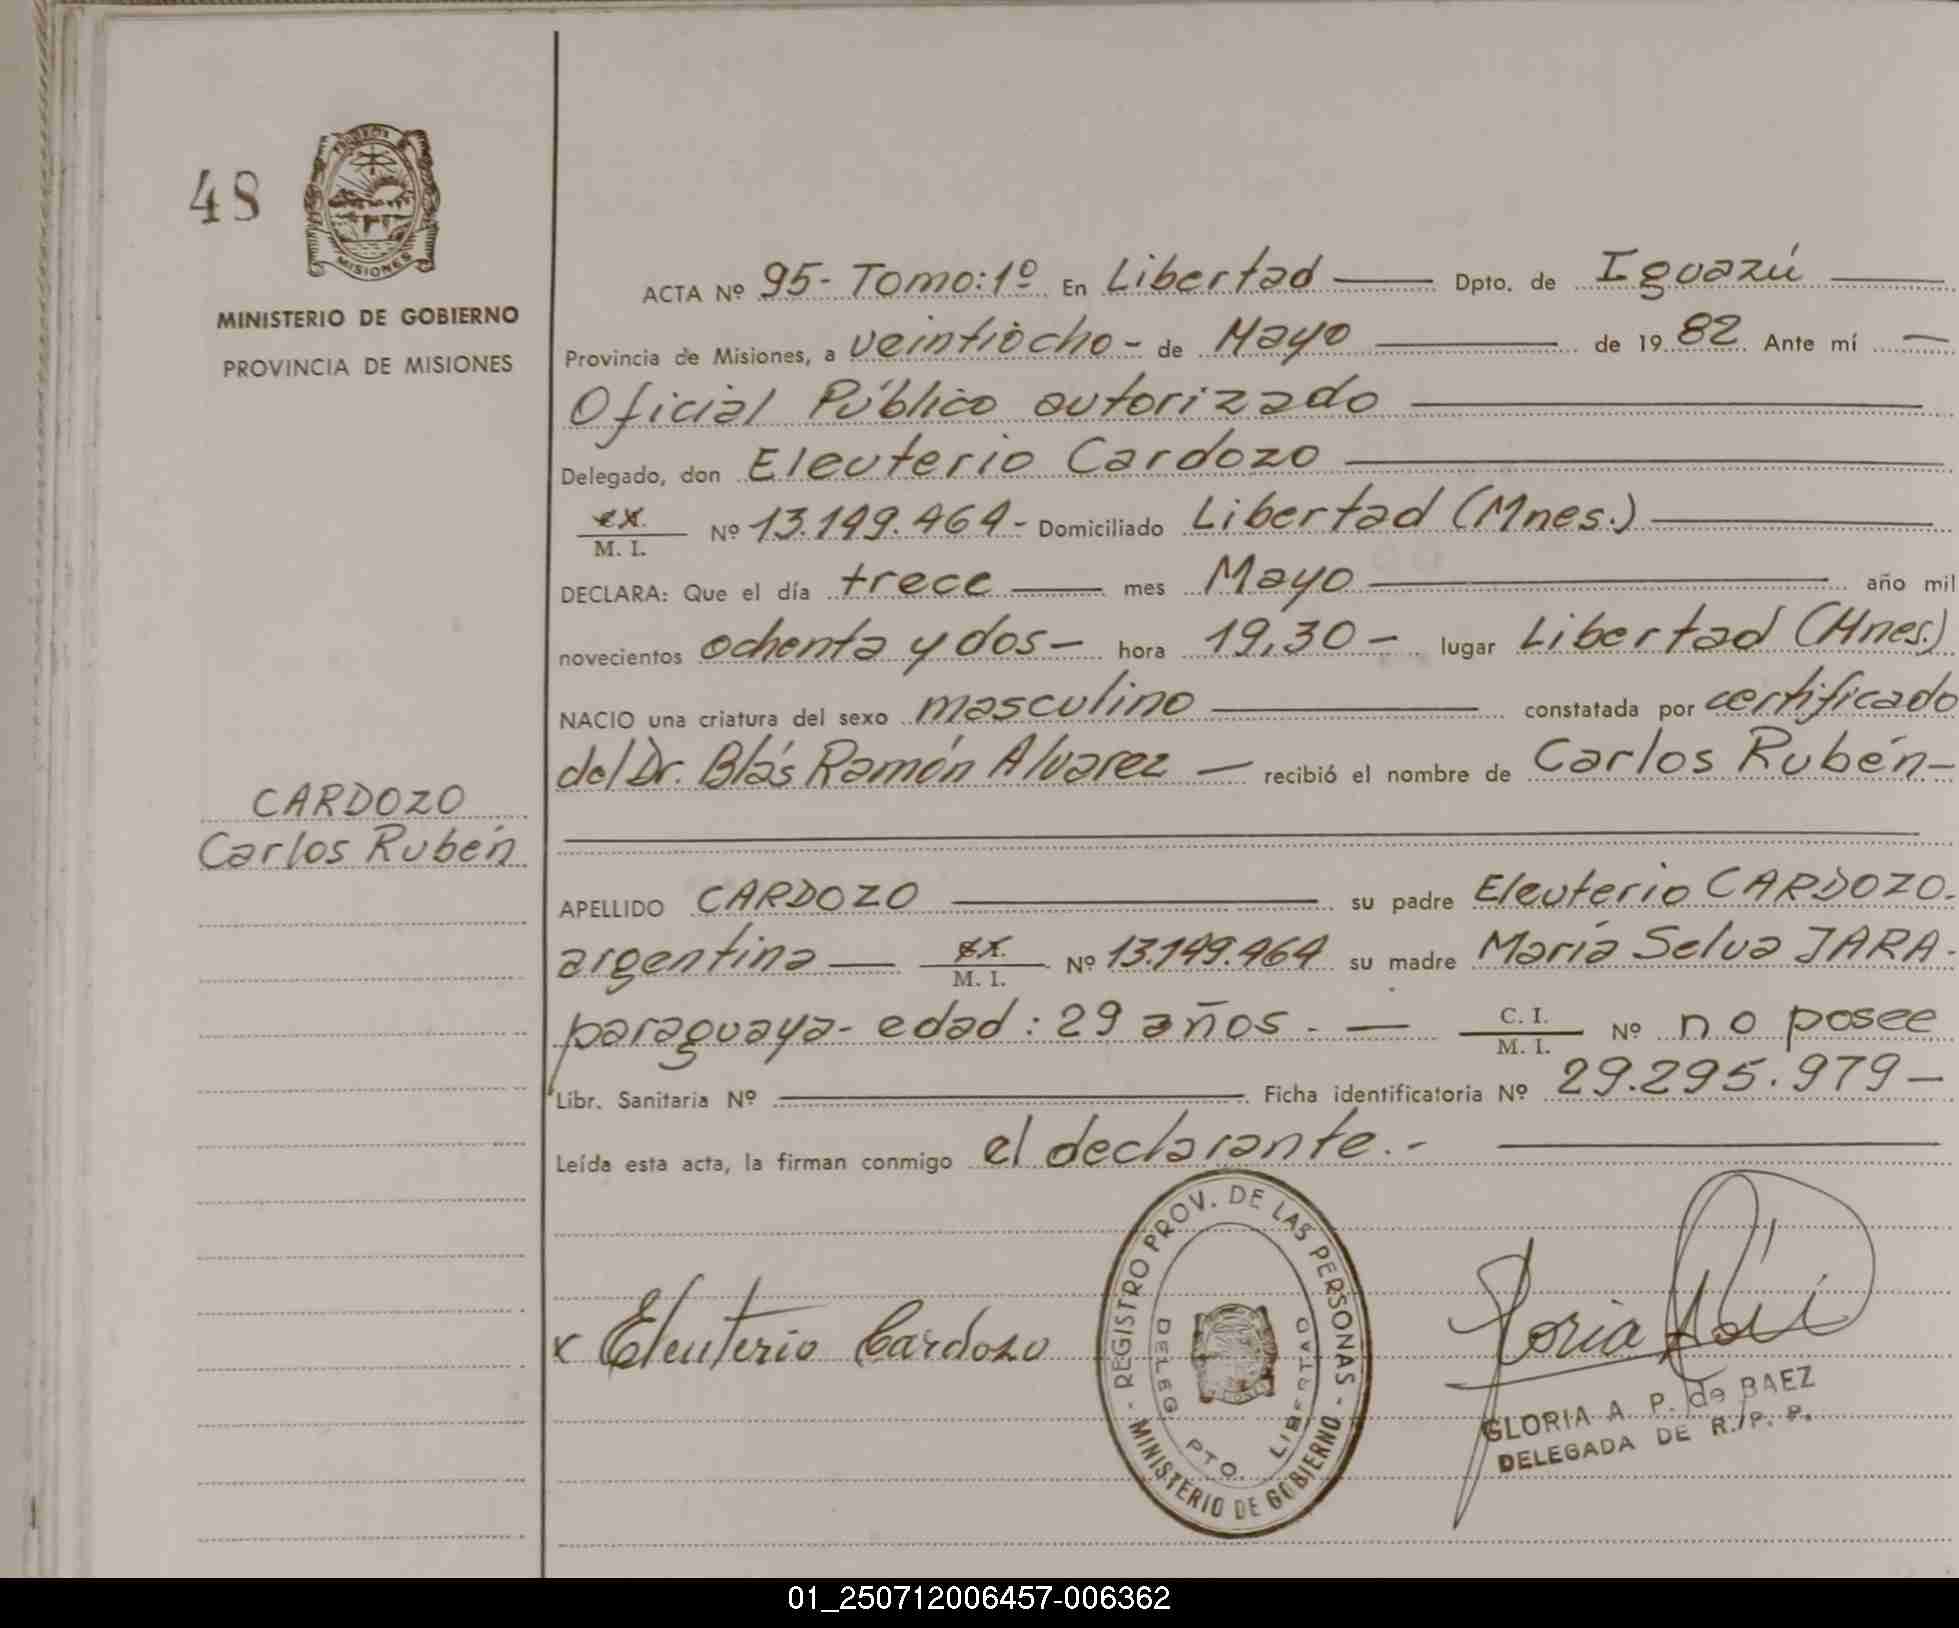 48
MISIONES
MINISTERIO DE GOBIERNO
PROVINCIA DE MISIONES
CARDOZO
Carlos Rubén
ACTA Nº 95- Tomo:1º En Libertad Dpto. de Iguazú
Provincia de Misiones, a veintiocho - de Mayo de 1982 Ante mí
Oficial Público autorizado
Delegado, don Eleuterio Cardozo
M. I. Nº 13.149.464- Domiciliado Libertad (Mnes.)
DECLARA: Que el día trece mes Mayo año mil
novecientos ochenta y dos - hora 19,30 - lugar Libertad (Mnes.)
NACIO una criatura del sexo masculino constatada por certificado
del Dr. Blás Ramón Alvarez - recibió el nombre de Carlos Rubén-
APELLIDO CARDOZO su padre Eleuterio CARDOZO.
argentina M. I. Nº 13.149.464 su madre María Selva JARA-
paraguaya- edad: 29 años.- C. I. M. I. Nº no posee
Libr. Sanitaria Nº Ficha identificatoria Nº 29.295.979-
Leída esta acta, la firman conmigo el declarante.-
x Eleuterio Cardozo
- REGISTRO PROV. DE LAS PERSONAS -
MINISTERIO DE GOBIERNO
DELEG. PTO. LIBERTAD
Gloria
GLORIA A P. de BAEZ
DELEGADA DE R. P. P.
01_250712006457-006362